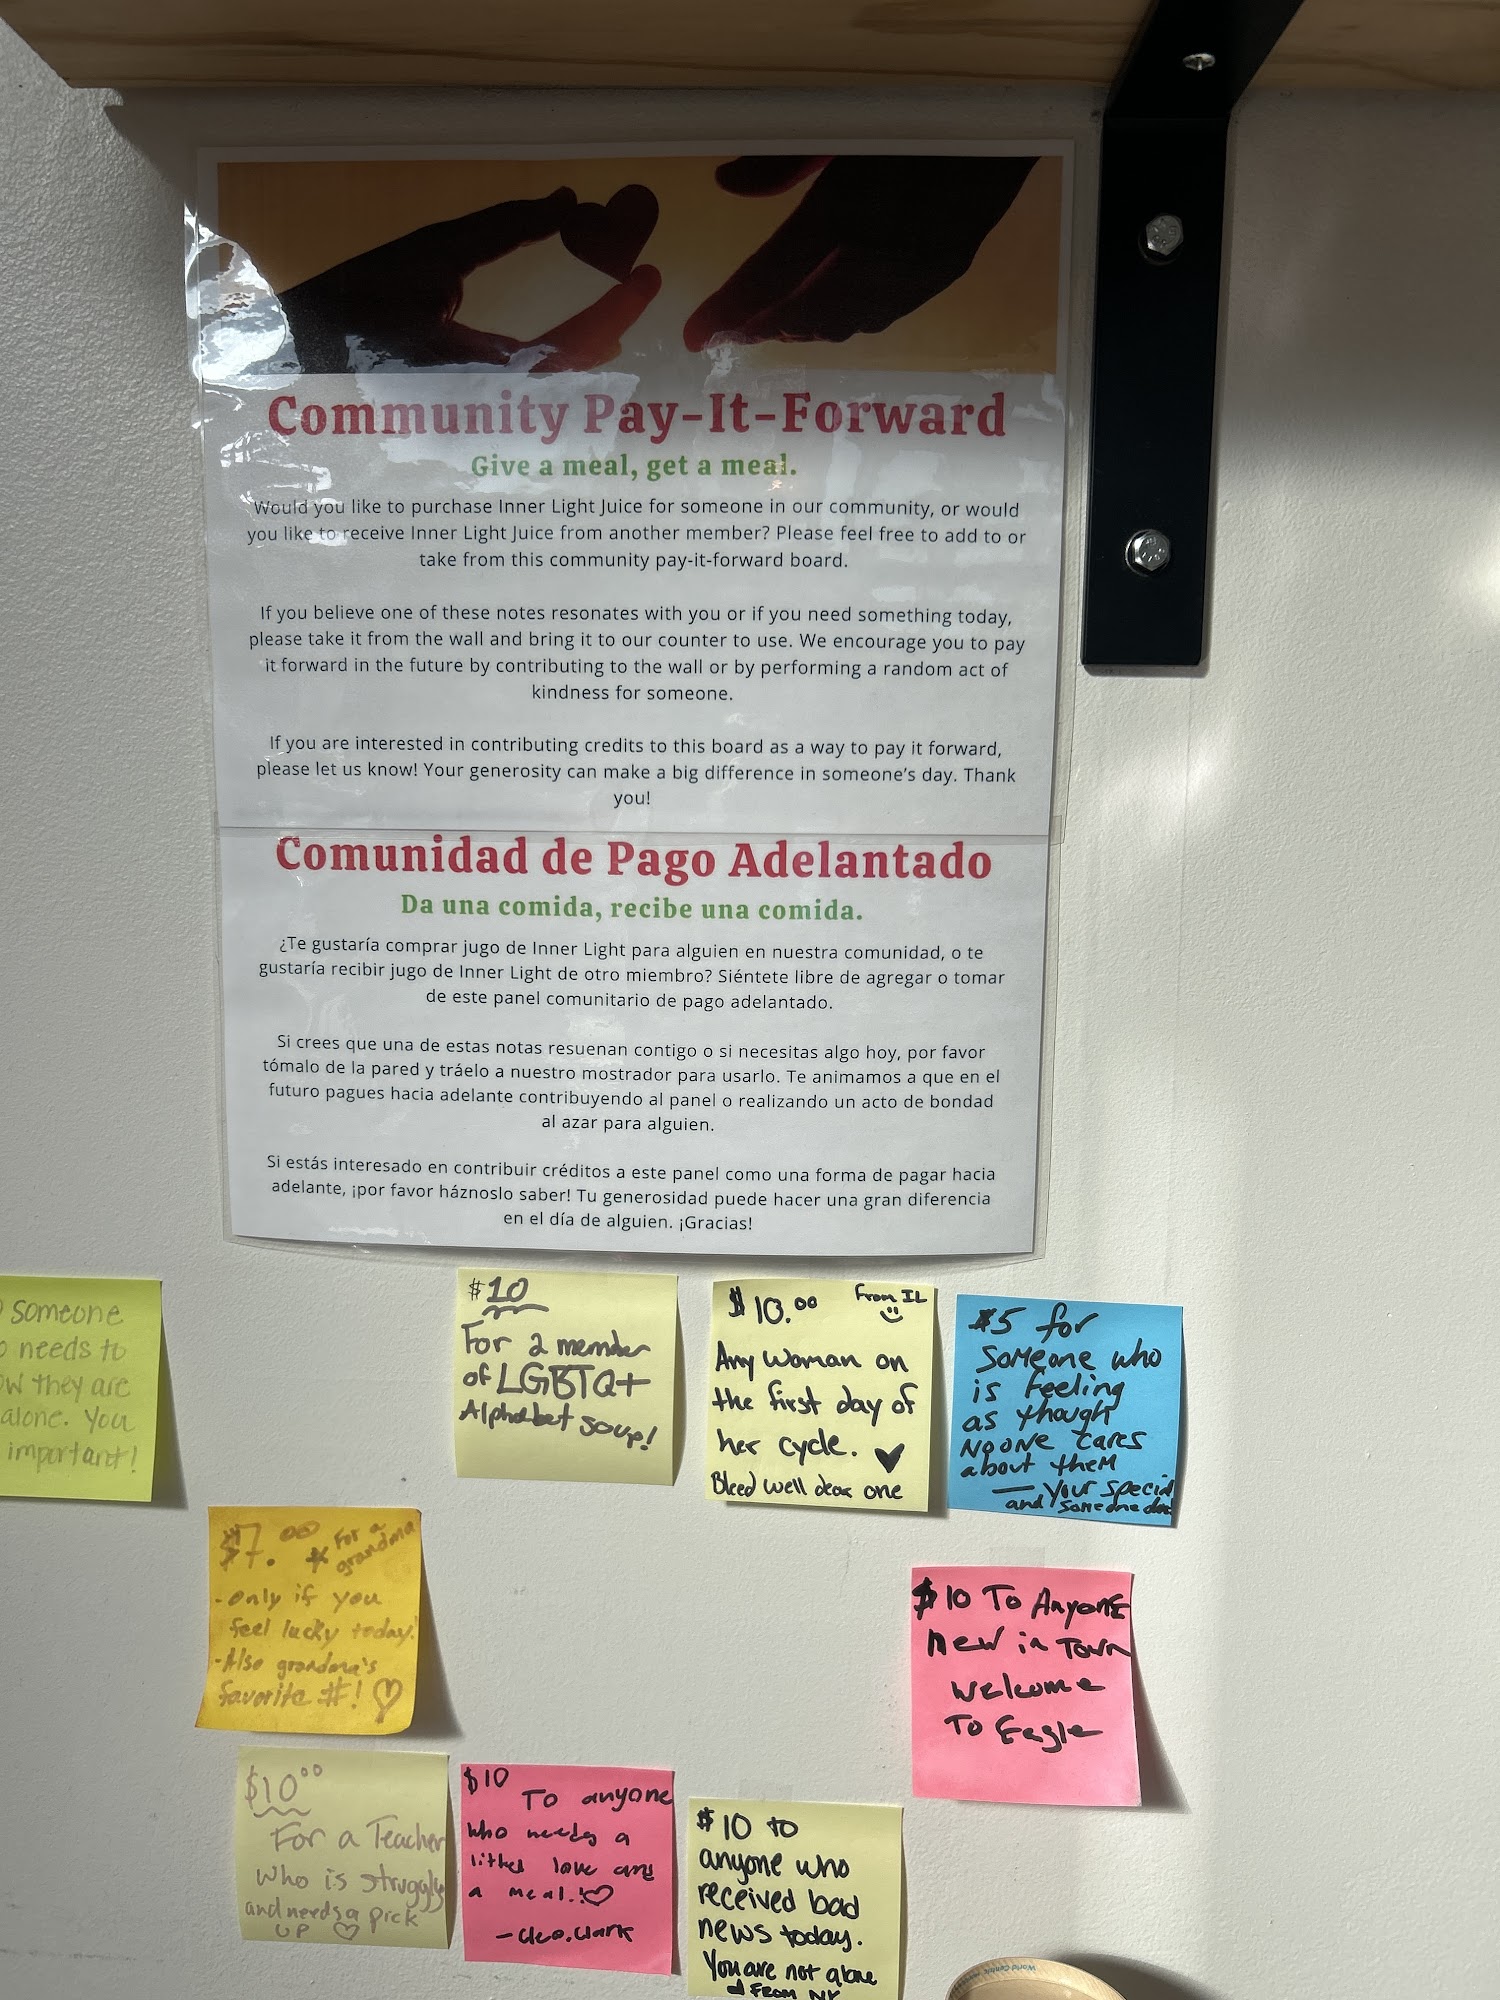 Community Pay-It-Forward
Give a meal, get a meal.
Would you like to purchase Inner Light Juice for someone in our community, or would
you like to receive Inner Light Juice from another member? Please feel free to add to or
take from this community pay-it-forward board.
If you believe one of these notes resonates with you or if you need something today,
please take it from the wall and bring it to our counter to use. We encourage you to pay
it forward in the future by contributing to the wall or by performing a random act of
kindness for someone.
If you are interested in contributing credits to this board as a way to pay it forward,
please let us know! Your generosity can make a big difference in someone's day. Thank
you!
Comunidad de Pago Adelantado
Da una comida, recibe una comida.
¿Te gustaría comprar jugo de Inner Light para alguien en nuestra comunidad, o te
gustaría recibir jugo de Inner Light de otro miembro? Siéntete libre de agregar o tomar
de este panel comunitario de pago adelantado.
Si crees que una de estas notas resuenan contigo o si necesitas algo hoy, por favor
tómalo de la pared y tráelo a nuestro mostrador para usarlo. Te animamos a que en el
futuro pagues hacia adelante contribuyendo al panel o realizando un acto de bondad
al azar para alguien.
Si estás interesado en contribuir créditos a este panel como una forma de pagar hacia
adelante, ¡por favor háznoslo saber! Tu generosidad puede hacer una gran diferencia
en el día de alguien. ¡Gracias!
someone
needs to
they are
alone. You
important!
$10
For a member
of LGBTQ+
Alphabet soup!
$10.00 From IL
Any woman on
the first day of
her cycle.
Bleed well dear one
$5 for
someone who
is feeling
as though
NO ONE cares
about them
— your special
and someone does
$7.00 * For a
grandma
- only if you
feel lucky today!
- Also grandma's
favorite #!
$10 To Anyone
new in Town
welcome
To Eagle
$10.00
For a Teacher
who is struggly
and needs a pick
up
$10 To anyone
who needs a
little love and
a meal!
$10 to
anyone who
received bad
news today.
You are not alone
From NY
World Centric